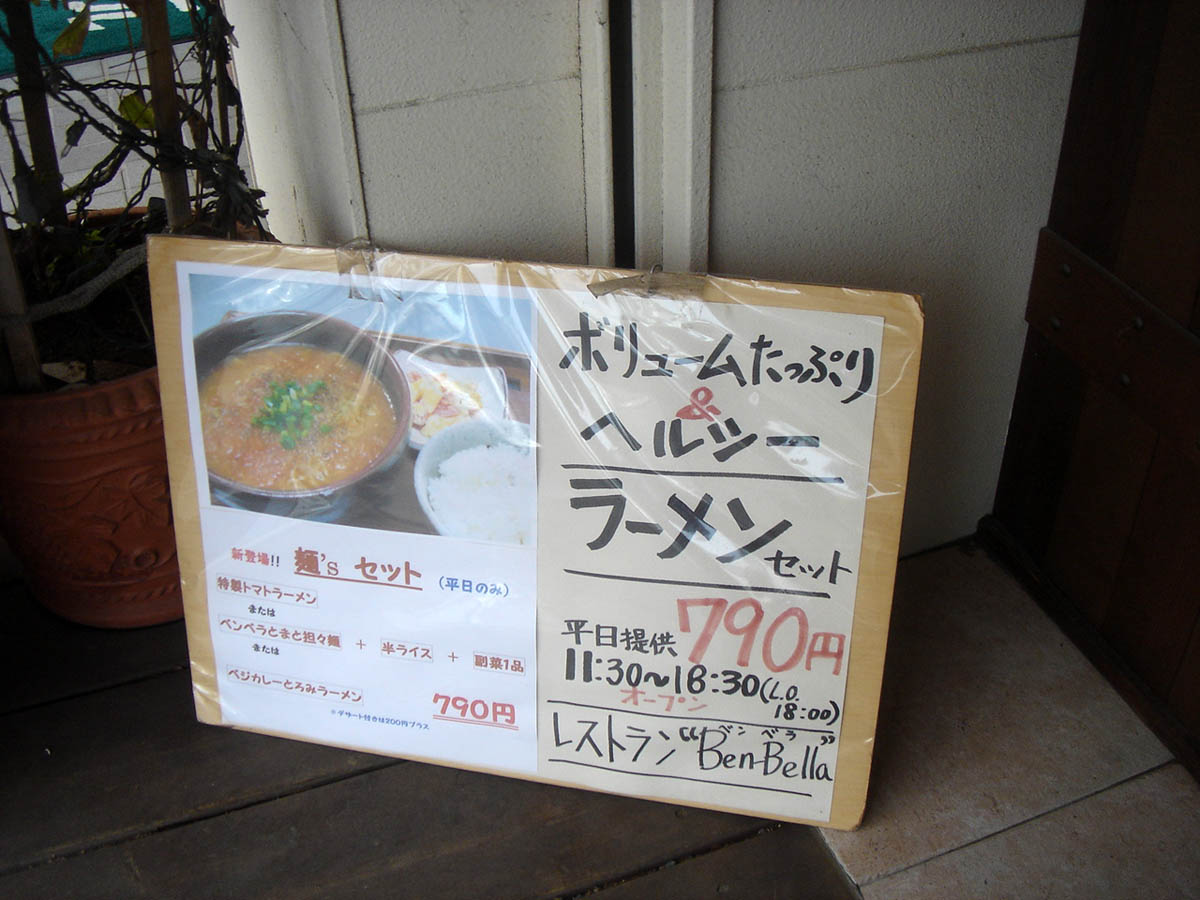 新登場!! 麺's セット (平日のみ)
特製トマトラーメン
または
ベンベラとまと担々麺 + 半ライス + 副菜1品
または
ベジカレーとろみラーメン
790円
※デザート付きは200円プラス
ボリュームたっぷり
&
ヘルシー
ラーメンセット
平日提供 790円
11:30～18:30(L.O. 18:00)
オープン
ベンベラ
レストラン“Ben-Bella”